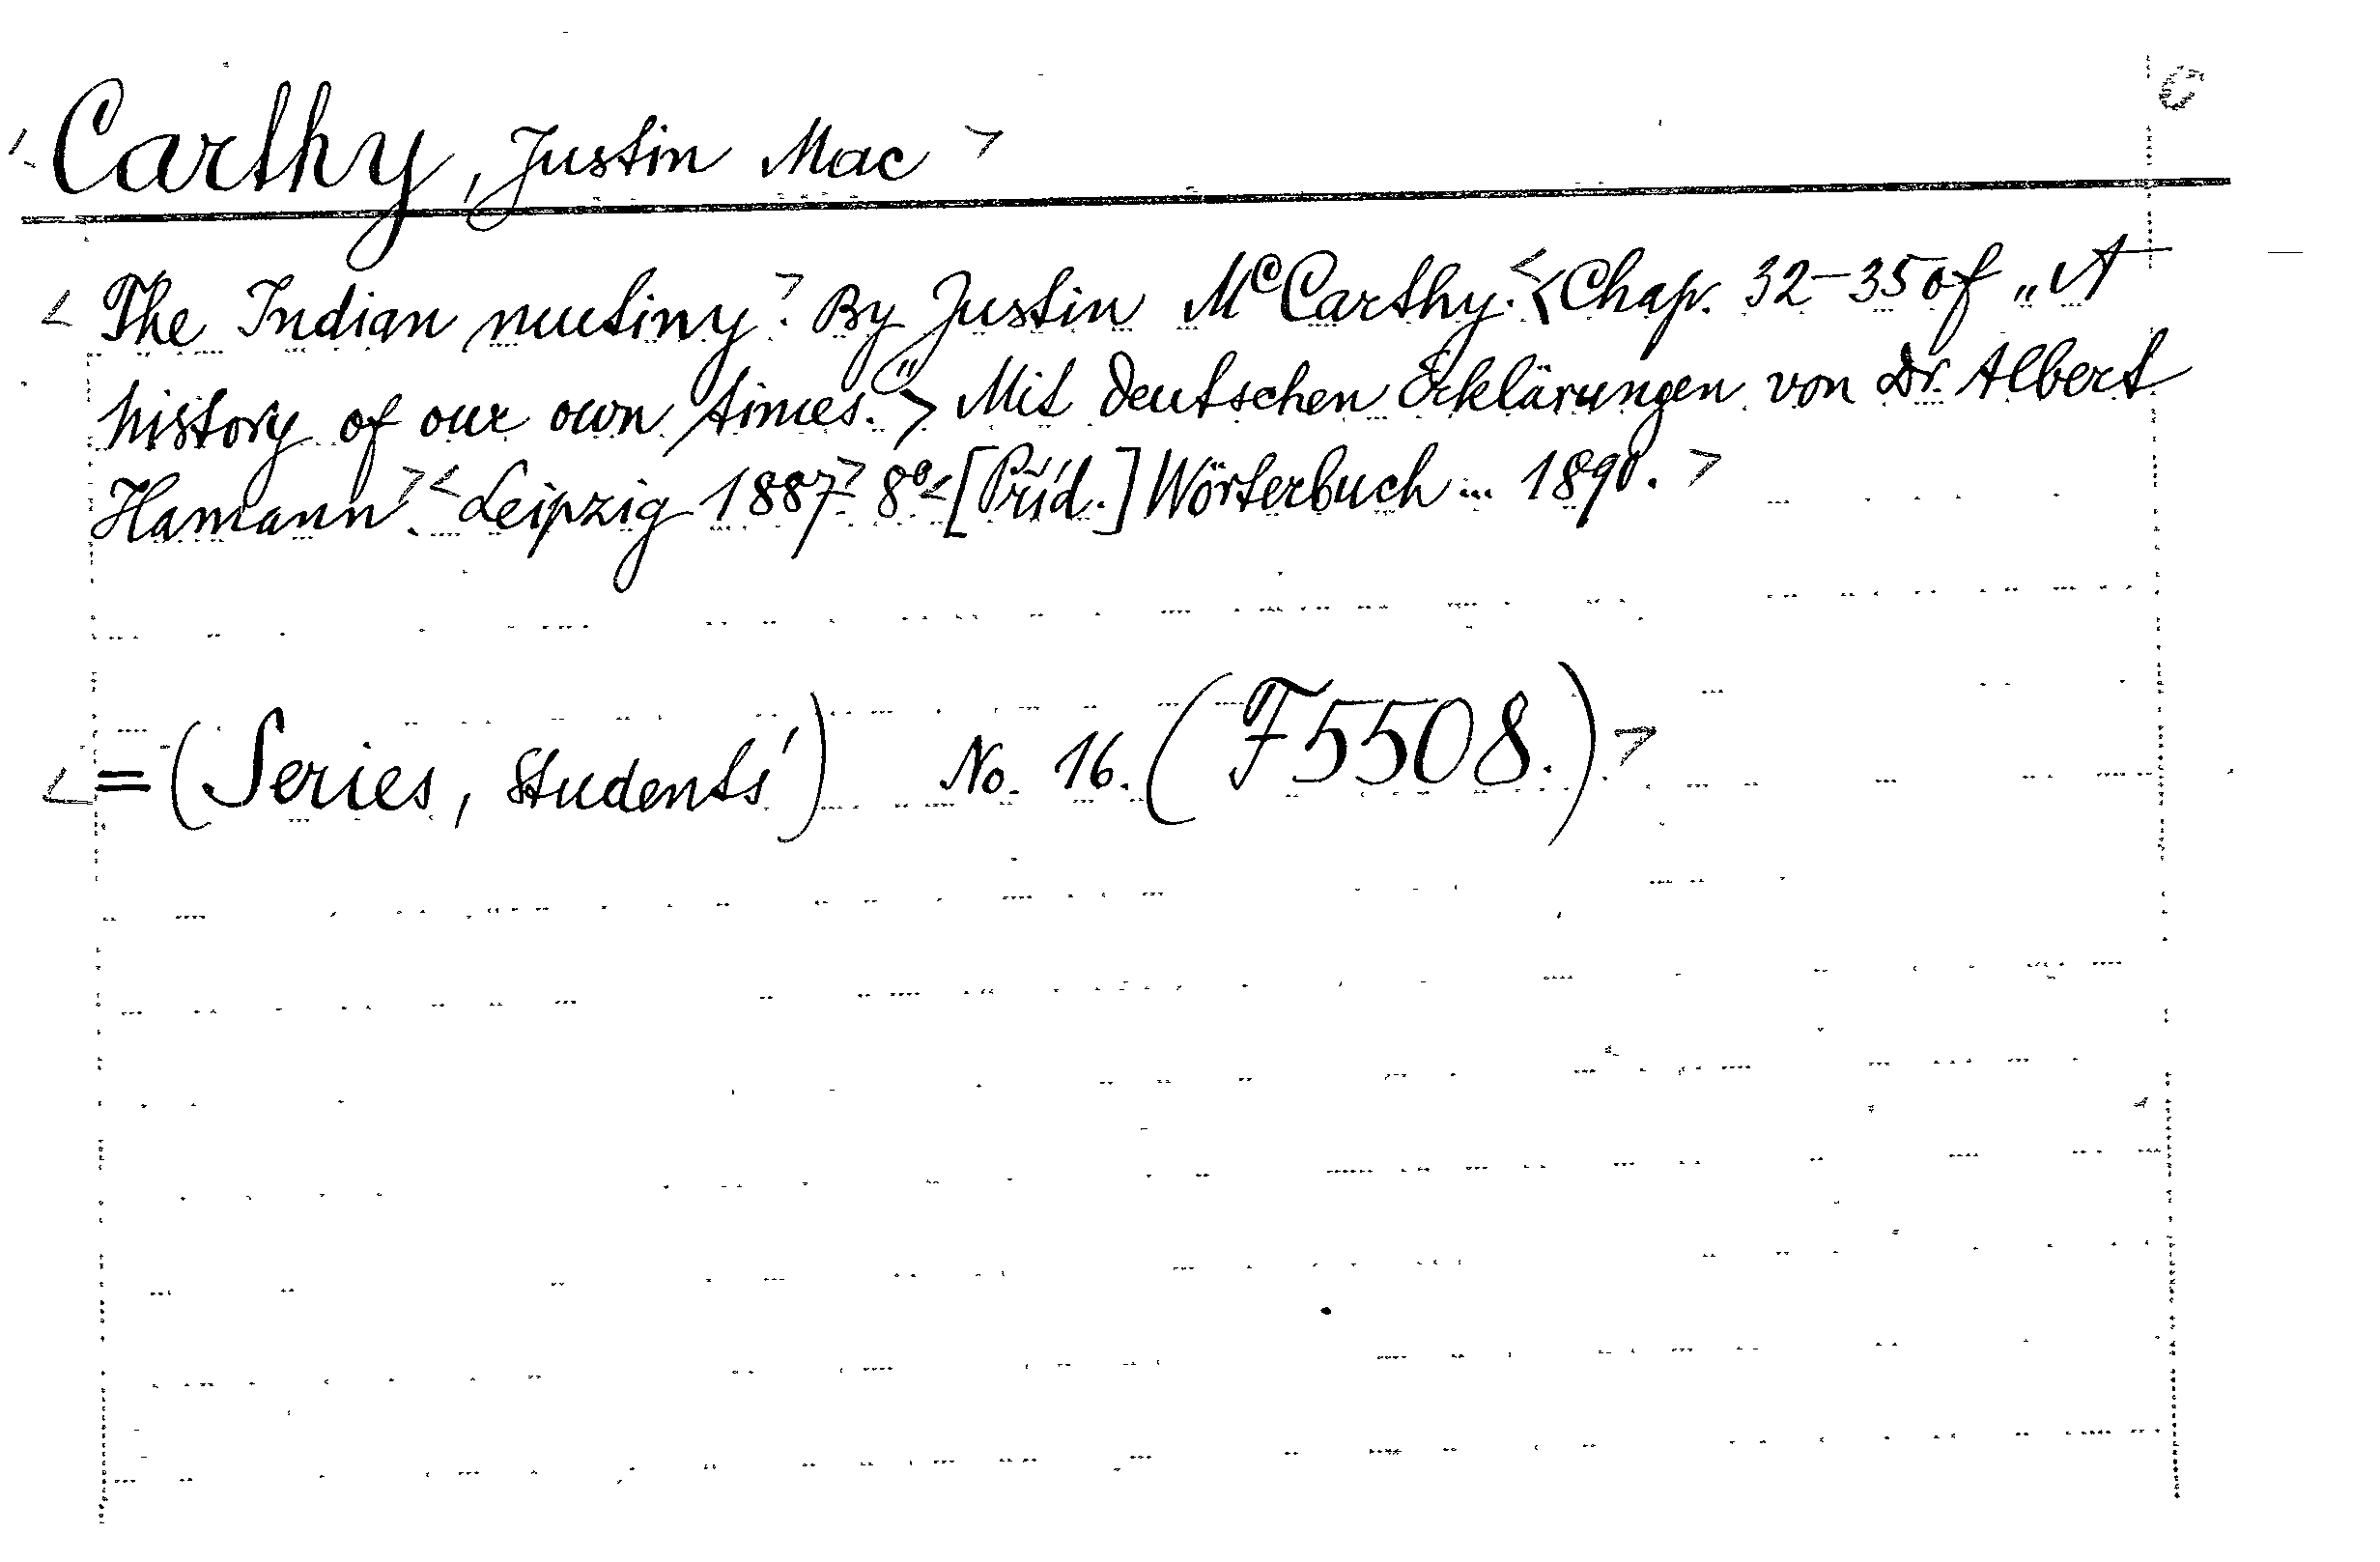 C
<Carthy, Justin Mac>
<The Indian mutiny>. By Justin McCarthy.<<Chap. 32-35 of „A
history of our own times.“> Mit deutschen Erklärungen von Dr. Albert
Hamann>.<Leipzig 1887> 8°<[Příd.] Wörterbuch... 1890.>
<=(Series, Students') No. 16. (F 5508.)>